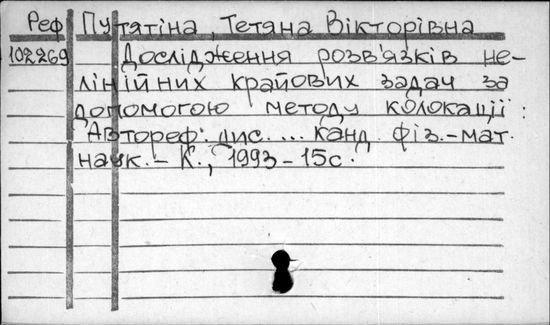 Реф Путятіна, Тетяна Вікторівна
102269 Дослідження розв'язків не-
лінійних крайових задач за
допомогою методу колокації:
Автореф. дис. ... канд. фіз.-мат.
наук. - К., 1993 - 15с.